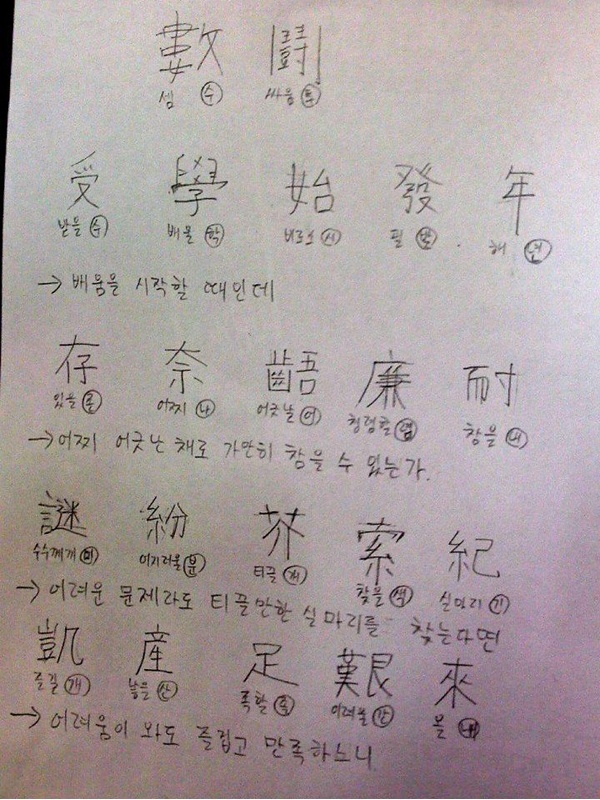 數 鬪
셈 수 싸움 투
受 學 始 發 年
받을 수 배울 학 비로소 시 필 발 해 연
→ 배움을 시작할 때인데
存 奈 齬 廉 耐
있을 존 어찌 나 어긋날 어 청렴할 염 참을 내
→ 어찌 어긋난 채로 가만히 참을 수 있는가.
謎 紛 芥 索 紀
수수께끼 미 어지러울 분 티끌 개 찾을 색 실마리 기
→ 어려운 문제라도 티끌만한 실마리를 찾는다면
凱 産 足 艱 來
즐길 개 낳을 산 족할 족 어려울 간 올 내
→ 어려움이 와도 즐겁고 만족하느니